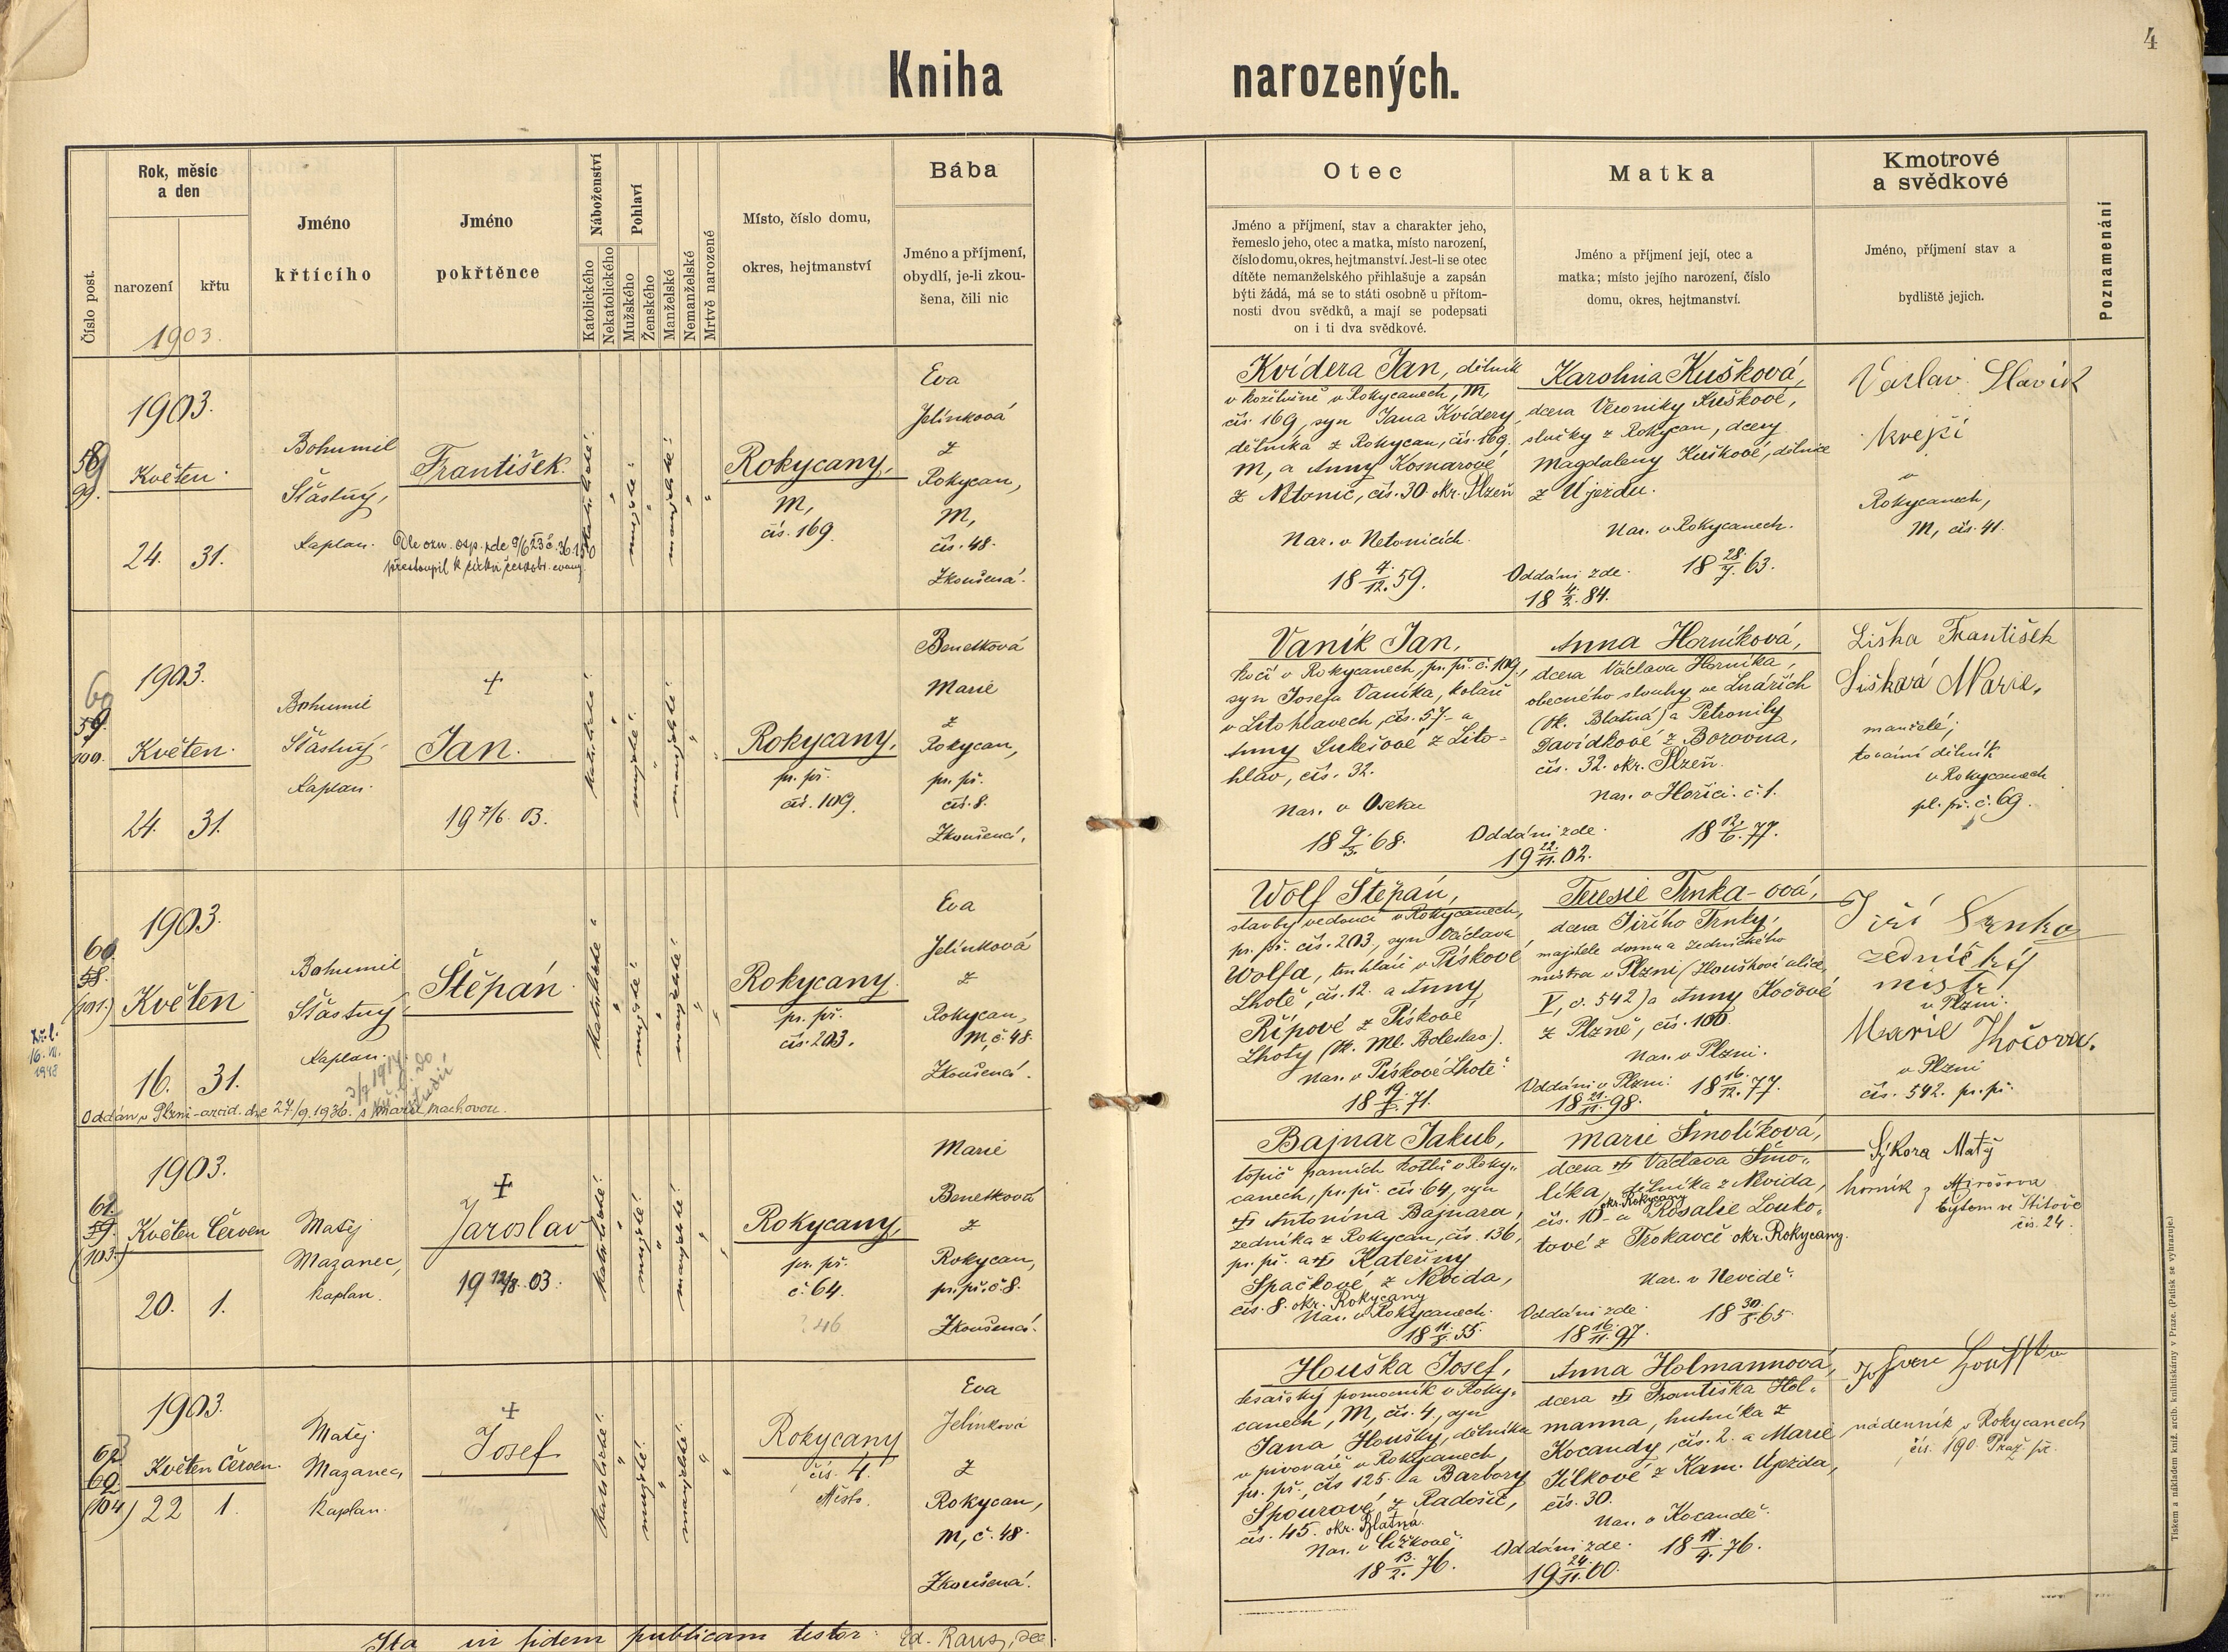 4
Kniha narozených.
Číslo post.
Rok, měsíc
a den
narození
křtu
1903.
Jméno
křtícího
Jméno
pokřtěnce
Náboženství
Katolického
Nekatolického
Pohlaví
Mužského
Ženského
Manželské
Nemanželské
Mrtvě narozené
Místo, číslo domu,
okres, hejtmanství
Bába
Jméno a příjmení,
obydlí, je-li zkou-
šena, čili nic
Otec
Jméno a příjmení, stav a charakter jeho,
řemeslo jeho, otec a matka, místo narození,
číslo domu, okres, hejtmanství. Jest-li se otec
dítěte nemanželského přihlašuje a zapsán
býti žádá, má se to státi osobně u přítom-
nosti dvou svědků, a mají se podepsati
on i ti dva svědkové.
Matka
Jméno a příjmení její, otec a
matka; místo jejího narození, číslo
domu, okres, hejtmanství.
Kmotrové
a svědkové
Jméno, příjmení stav a
bydliště jejich.
Poznamenání
99.
1903.
Květen
24. 31.
Bohumil
Šťastný,
kaplan.
František.
přestoupil k církvi českobr. evang.
katolické
mužské
manželské
Rokycany,
M,
čís. 169.
Eva
Jelínková
z
Rokycan,
M,
čís. 48.
Zkoušená.
Kvídera Jan, dělník
v kožišně v Rokycanech, M,
čís. 169, syn Jana Kvídery,
dělníka z Rokycan, čís. 169.
M, a Anny Kosnarové
z Netonic, čís. 30. okr. Plzeň
Nar. v Netonicích.
18 4/12. 59.
Karolina Kušková,
dcera Veroniky Kuškové,
služky z Rokycan, dcery
Magdaleny Kuškové, dělnice
z Újezdu.
Nar. v Rokycanech.
18 28/7. 63.
Oddáni zde.
18 4/2. 84.
Václav Slavík
krejčí
v
Rokycanech,
M, čís. 41.
60
59.
100.
1903.
Květen.
24. 31.
Bohumil
Šťastný,
kaplan.
+
Jan.
19 7/6. 03.
katolické
mužské
manželské
Rokycany,
pr. př.
čís. 109.
Benetková
Marie
z
Rokycan,
pr. př.
čís. 8.
Zkoušená.
Vaník Jan,
kočí v Rokycanech, pr. př. č. 109,
syn Josefa Vaníka, koláře
v Litohlavech, čís. 57 a
Anny Lukešové z Lito-
hlav, čís. 32.
Nar. v Oseku
18 9/3. 68.
Anna Horníková,
dcera Václava Horníka,
obecného slouhy ve Lnářích
(ok. Blatná) a Petronily
Davídkové z Borovna,
čís. 32. okr. Plzeň.
Nar. v Hořici. č. 1.
18 12/6. 77.
Oddáni zde.
19 22/11. 02.
Liška František
Lišková Marie,
manželé,
tovární dělník
v Rokycanech
pl. př. č. 69.
(101.)
1903.
Květen
16. 31.
Bohumil
Šťastný,
kaplan.
Štěpán
Oddán v Plzni-arcid. dne 27/9. 1936. s Marií Machovou.
katolické
mužské
manželské
Rokycany
pr. př.
čís. 203.
Eva
Jelínková
z
Rokycan,
M, č. 48.
Zkoušená.
Wolf Štěpán,
stavbyvedoucí v Rokycanech,
pr. př. čís. 203, syn Václava
Wolfa, truhláře v Pískové
Lhotě, čís. 12. a Anny
Řípové z Pískové
Lhoty (ok. Ml. Boleslav).
Nar. v Pískové Lhotě
Teresie Trnka-ová,
dcera Jiřího Trnky,
majitele domu a zednického
mistra v Plzni (Houškově ulice,
V, č. 542) a Anny Kočové
z Plzně, čís. 100.
Nar. v Plzni.
18 16/12. 77.
Oddáni v Plzni.
18 21/11. 98.
Jiří Trnka
zednický
mistr
v Plzni.
Marie Kočová.
v Plzni
čís. 542. pr. př.
(103.)
1903.
Květen Červen
20. 1.
Matěj
Mazanec,
kaplan.
+
Jaroslav
19 12/8. 03.
katolické
mužské
manželské
Rokycany,
pr. př.
č. 64.
? 46
Marie
Benetková
z
Rokycan,
pr. př. č. 8.
Zkoušená.
Bajnar Jakub,
topič parních kotlů v Roky-
canech, pr. př. čís. 64, syn
Antonína Bajnara,
zedníka z Rokycan, čís. 136,
pr. př. a Kateřiny
Spačkové, z Nevida,
čís. 8. okr. Rokycany
Nar. v Rokycanech.
Marie Smolíková,
dcera Václava Smo-
líka, dělníka z Nevida,
okr. Rokycany
čís. 10 a Rosalie Louko-
tové z Trokavec okr. Rokycany.
Nar. v Nevidě.
Oddáni zde.
18 16/11. 97.
Sýkora Matěj
horník z Mirošova
bytem ve Štítově
čís. 24.
(104)
1903.
Květen Červen.
22 1.
Matěj
Mazanec,
kaplan.
+
Josef
katolické
mužské
manželské
Rokycany
čís. 4.
Město.
Eva
Jelínková
z
Rokycan,
M, č. 48.
Zkoušená.
Houška Josef,
tesařský pomocník v Roky-
canech, M, čís. 4, syn
Jana Houšky, dělníka
v pivováře v Rokycanech,
pr. př., čís 125. a Barbory
Spourové, z Radošic,
čís. 45. okr. Blatná.
18 13/2. 76.
Anna Holmannová,
dcera Františka Hol-
manna, hutníka z
Kocandy, čís. 2. a Marie
Jílkové z Kam. Újezda,
čís. 30.
Nar. v Kocandě.
18 11/4. 76.
Oddáni zde.
19 24/11. 00.
nádenník v Rokycanech
čís. 190. Praž. př.
Ita in fidem publicam testor: Ed. Raus, dec.
Tiskem a nákladem kníž. arcib. knihtiskárny v Praze. (Patisk se vyhrazuje.)